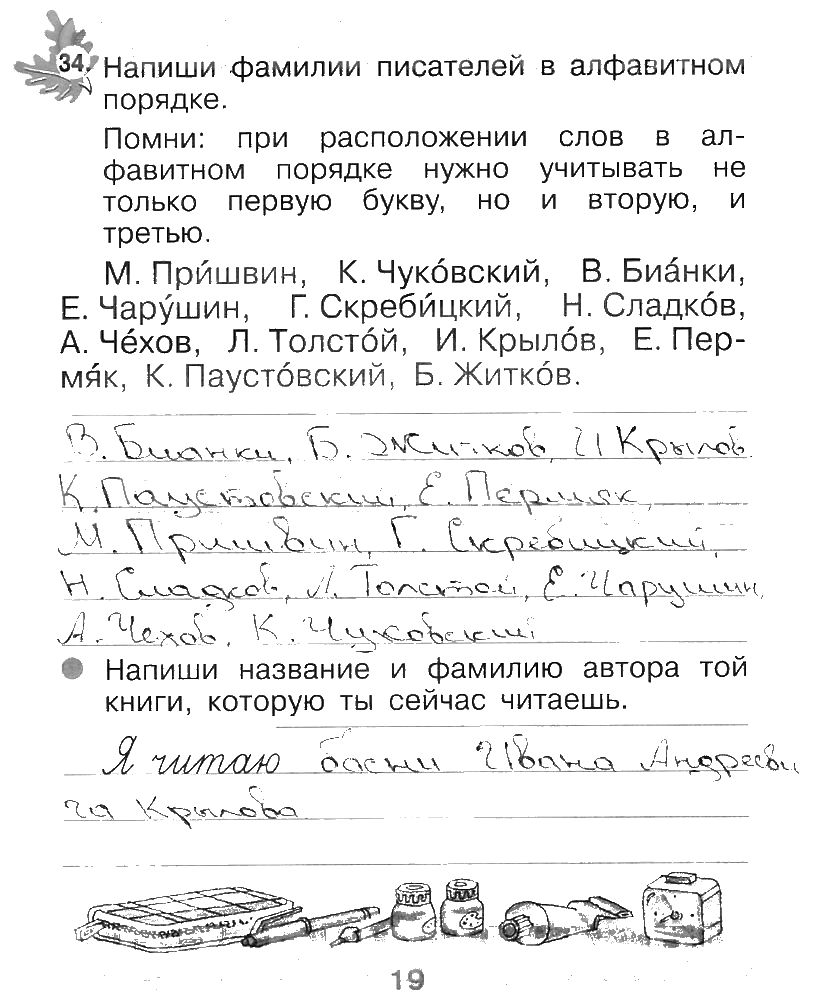 34. Напиши фамилии писателей в алфавитном
порядке.
Помни: при расположении слов в ал-
фавитном порядке нужно учитывать не
только первую букву, но и вторую, и
третью.
М. При́швин, К. Чуко́вский, В. Биа́нки,
Е. Чару́шин, Г. Скреби́цкий, Н. Сладко́в,
А. Че́хов, Л. Толсто́й, И. Крыло́в, Е. Пер-
мя́к, К. Паусто́вский, Б. Житко́в.
В. Бианки, Б. Житков, И Крылов
К. Паустовский, Е. Пермяк,
М. Пришвин, Г. Скребицкий,
Н. Сладков, Л. Толстой, Е. Чарушин,
А. Чехов, К. Чуковский
Напиши название и фамилию автора той
книги, которую ты сейчас читаешь.
Я читаю басни Ивана Андрееви
ча Крылова
19